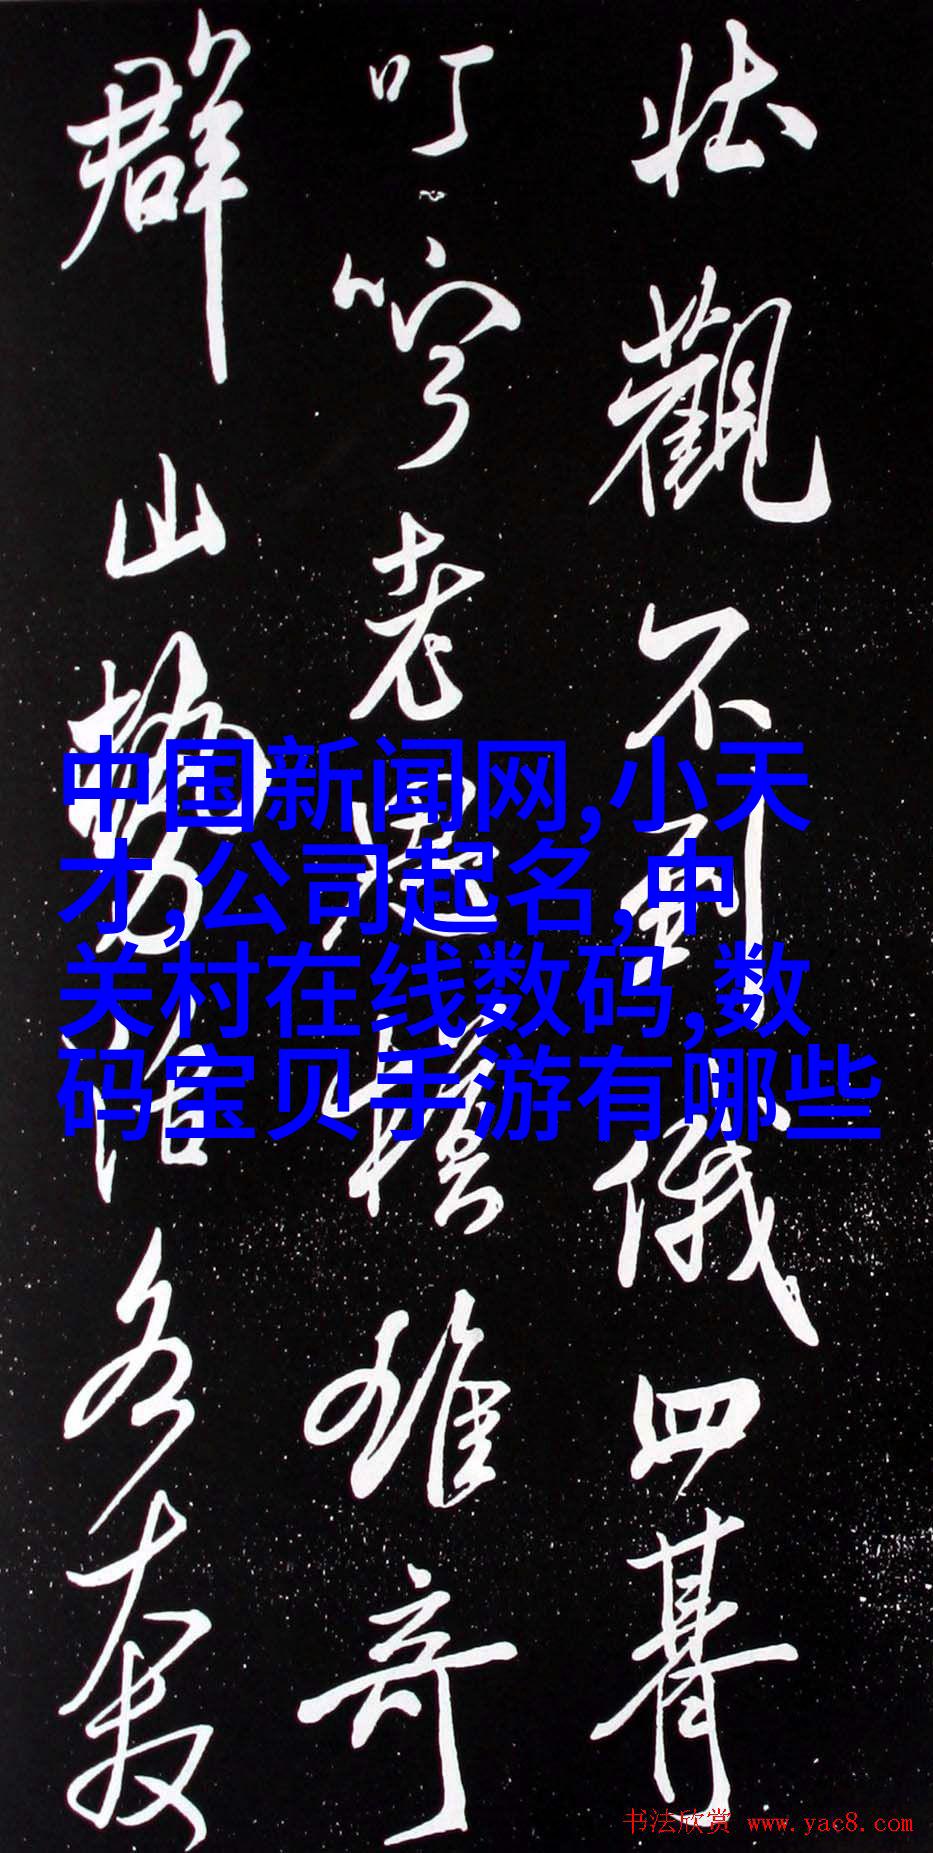 壯觀不到俄四
叮嚀老雄奇
群山勢活各
中国新闻网,小天
才,公司起名,中
关村在线数码,数
码宝贝手游有哪些
书法欣赏 www.yac8.com